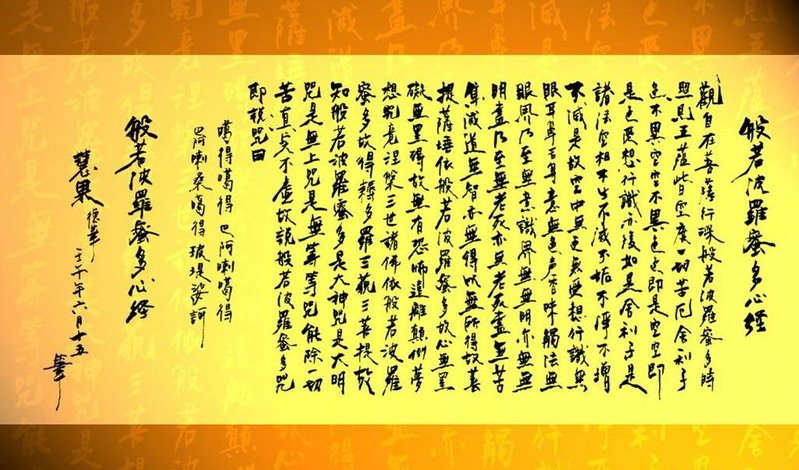 般若波羅蜜多心經
觀自在菩薩行深般若波羅蜜多時
照見五蘊皆空度一切苦厄舍利子
色不異空空不異色色即是空空即
是色受想行識亦復如是舍利子是
諸法空相不生不滅不垢不淨不增
不減是故空中無色無受想行識無
眼耳鼻舌身意無色声香味觸法無
眼界乃至無意識界無無明亦無無
明盡乃至無老死亦無老死盡無苦
集滅道無智亦無得以無所得故菩
提薩埵依般若波羅蜜多故心無罣
礙無罣碍故無有恐怖遠離顛倒夢
想究竟涅槃三世諸佛依般若波羅
蜜多故得耨多羅三藐三菩提故
知般若波羅蜜多是大神咒是大明
咒是無上咒是無等等咒能除一切
苦真實不虛故說般若波羅蜜多咒
即說咒曰
噶得噶得 巴阿喇噶得
巴阿喇桑噶得 玻堤娑訶
般若波羅蜜多心經
慧果
壬午年六月十五